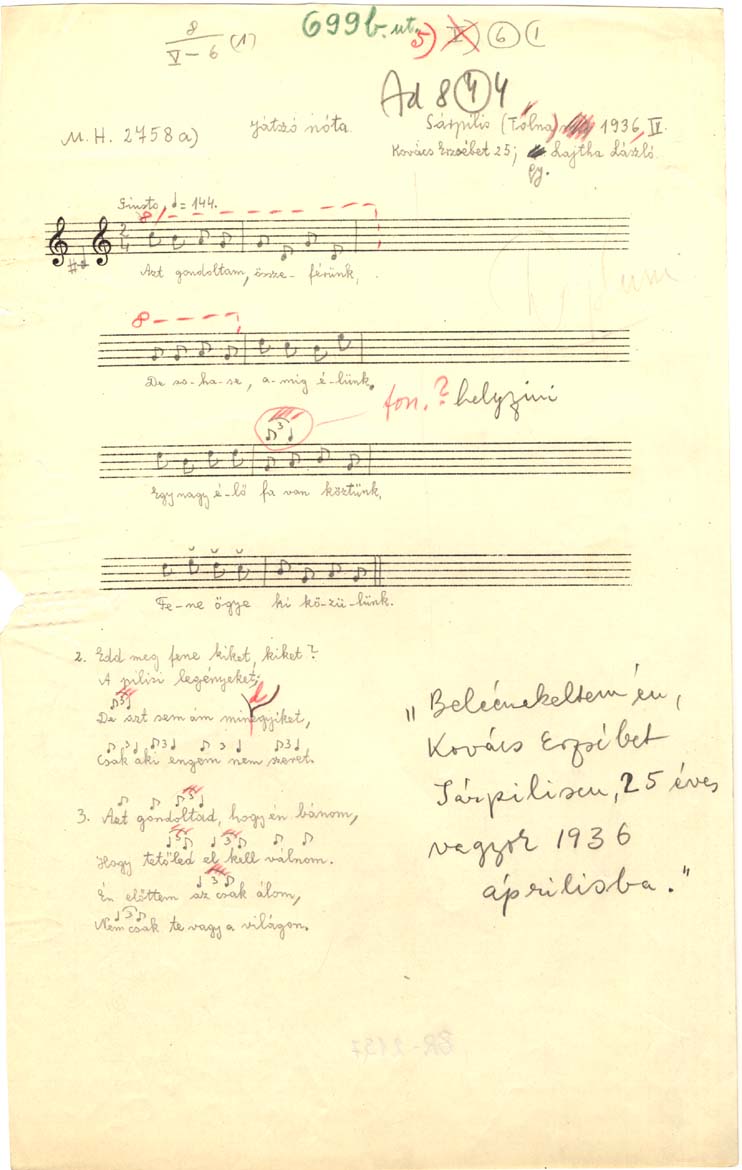 8
V–6 (1)
699b. ut.
5) V) 6 1
Ad 844
M. H. 2758a)
Játszó nóta.
Sárpilis (Tolna) 1936, IV.
Kovács Erzsébet 25; Lajtha László.
gy.
Giusto, ♩= 144.
8
2
4
Azt gondoltam, össze- férünk,
8
De so-ha-se, a-mig é-lünk.
fon.? helyzini
3
Egy nagy é-lő fa van köztünk,
Fe-ne ögye ki kö-zü-lünk.
2. Edd meg fene kiket, kiket?
A pilisi legényeket;
d
3
De azt sem ám minegyiket,
3 3 3 3
Csak aki engem nem szeret.
3
3. Azt gondoltad, hogy én bánom,
3 3
Hogy tetőled el kell válnom.
3
Én előttem az csak álom,
3
Nem csak te vagy a világon.
„Beleénekeltem én,
Kovács Erzsébet
Sárpilisen, 25 éves
vagyok 1936
áprilisba."